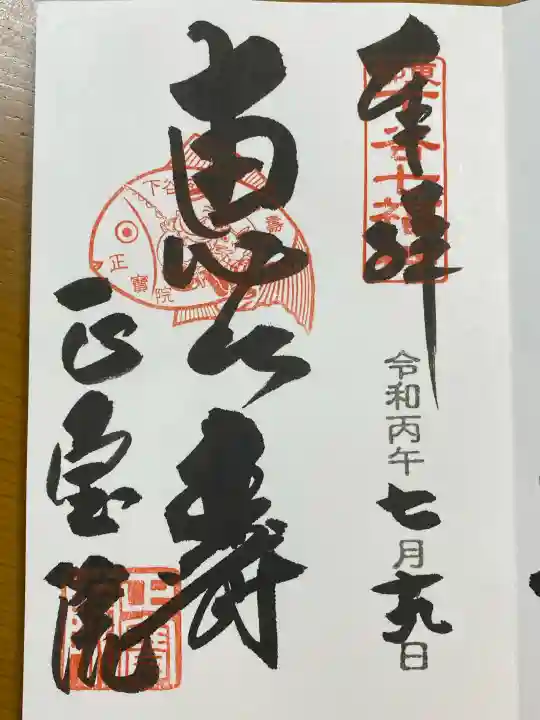 奉拝
下谷七福
令和丙午七月十九日
恵比寿
下谷
壽
正寶院
正宝院
正寶